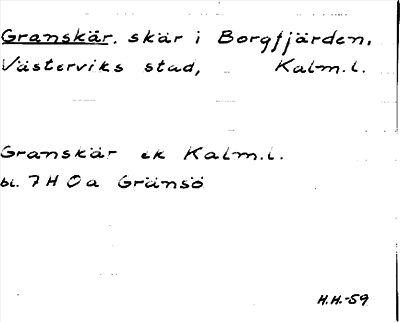 Granskär. skär i Borgfjärden,
Västerviks stad, Kalm.l.
Granskär ek Kalm.l.
bl. 7 H 0a Gränsö
H.H.-59